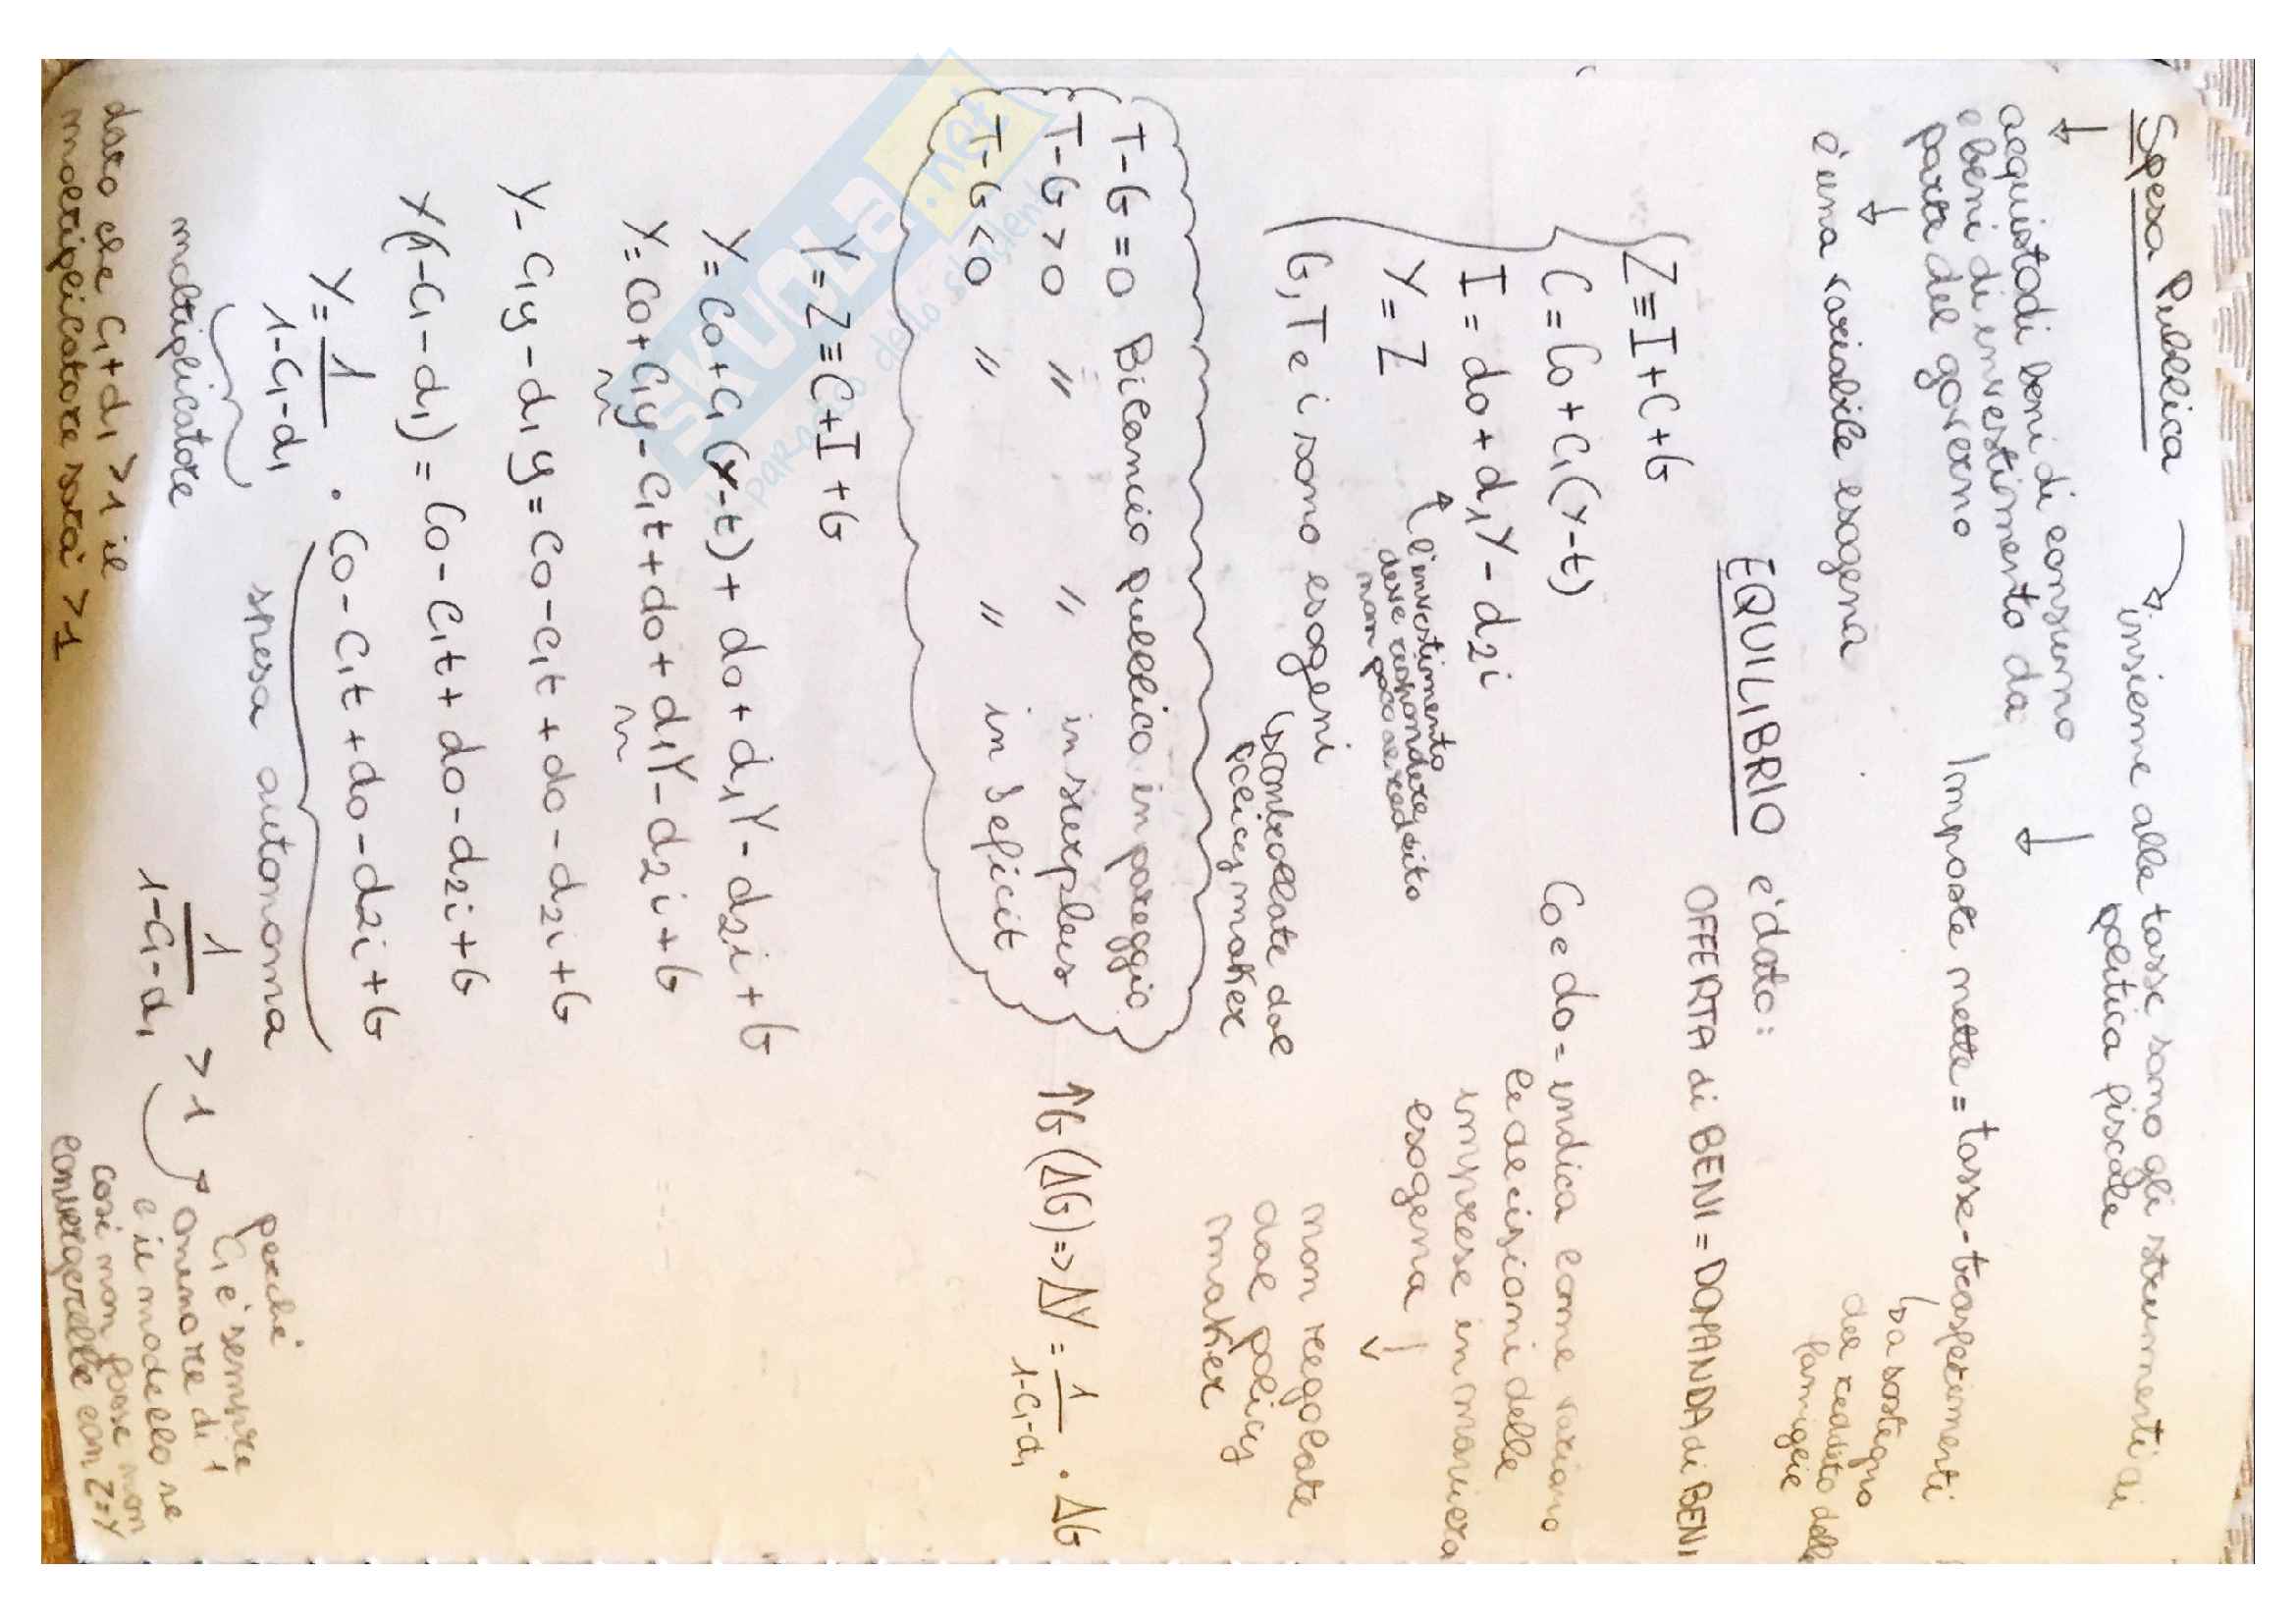 Spesa Pubblica
insieme alle tasse sono gli strumenti di
politica fiscale
acquisto di beni di consumo
e beni di investimento da
parte del governo
è una variabile esogena
Imposte nette = tasse - trasferimenti
a sostegno
del reddito delle
famiglie
EQUILIBRIO è dato:
OFFERTA di BENI = DOMANDA di BENI
Z ≡ I + C + G
C = C0 + C1 (Y - t)
I = d0 + d1Y - d2i
Y = Z
l'investimento
deve rispondere
non poco al reddito
G, T e i sono esogeni
(controllate dal
policy maker
C0 e d0 = indica come variano
le decisioni delle
imprese in maniera
esogena
non regolate
dal policy
maker
T - G = 0 Bilancio pubblico in pareggio
T - G > 0 " " in surplus
T - G < 0 " " in deficit
↑G (ΔG) => ΔY = 1/1-C1-d1 · ΔG
Y = Z = C + I + G
Y = C0 + C1 (Y - t) + d0 + d1Y - d2i + G
Y = C0 + C1y - C1t + d0 + d1Y - d2i + G
Y - C1y - d1y = C0 - C1t + d0 - d2i + G
Y(1 - C1 - d1) = C0 - C1t + d0 - d2i + G
Y = 1/1-C1-d1 · C0 - C1t + d0 - d2i + G
moltiplicatore
spesa autonoma
1/1-C1-d1 > 1
perché
C1 è sempre
minore di 1
e il modello se
così non fosse non
convergerebbe con Z=Y
dato che C1 + d1 > 1 il
moltiplicatore sarà > 1
SKUOLA.net
paradiso dello studente